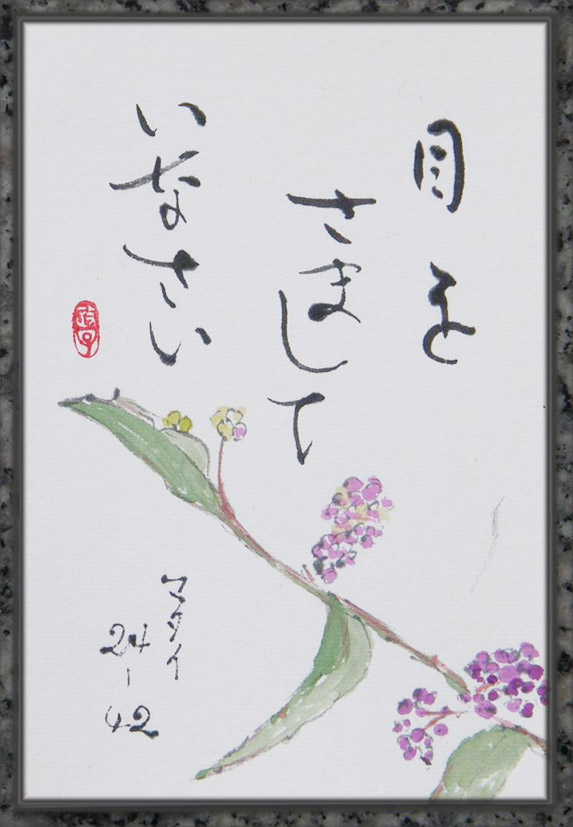 目を
さまして
いなさい
政子
マタイ
24-
42